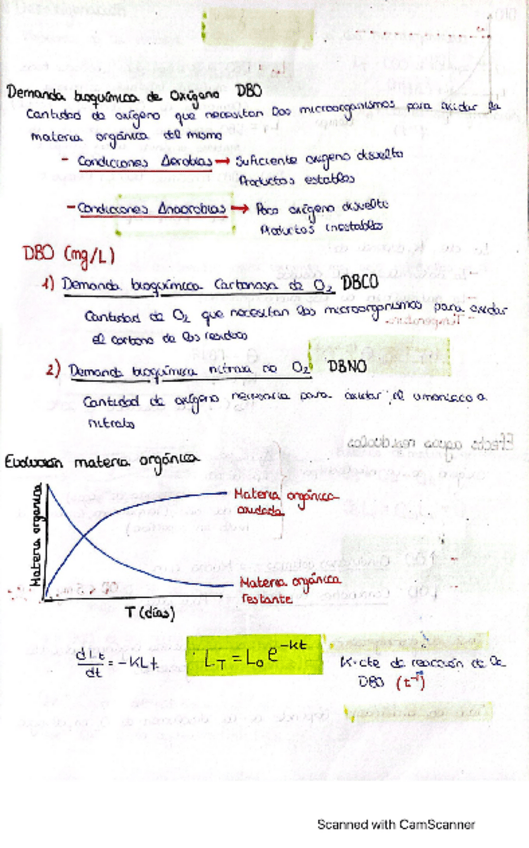 Demanda bioquímica de Oxígeno DBO
Cantidad de oxígeno que necesitan los microorganismos para oxidar la
materia orgánica del mismo
- Condiciones Aerobias → Suficiente oxígeno disuelto
Productos estables
- Condiciones Anaerobias → Poco oxígeno disuelto
Productos inestables
DBO (mg/L)
1) Demanda bioquímica Carbonosa de O₂ DBCO
Cantidad de O₂ que necesitan los microorganismos para oxidar
el carbono de los residuos
2) Demanda bioquímica nitrosa no O₂ DBNO
Cantidad de oxígeno necesaria para oxidar el amoniaco a
nitrato
Evolución materia orgánica
Materia orgánica
Materia orgánica
oxidada
Materia orgánica
restante
T (días)
dLt/dt = -KLt
L_T = L₀ e^-kt
K: cte de reacción de la
DBO (t⁻¹)
Scanned with CamScanner